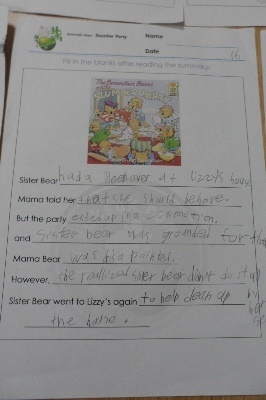 Slumber Party
Name
Date
Fill in the blanks after reading the summary.
The Berenstain Bears
SLUMBER PARTY
Sister Bear had a sleepover at lizzy's house
Mama told her that she should behave.
But the party commotion.
and Sister bear was grounded for
Mama Bear was
However, she sister bear do it all
Sister Bear went to Lizzy's again to help clean up
the